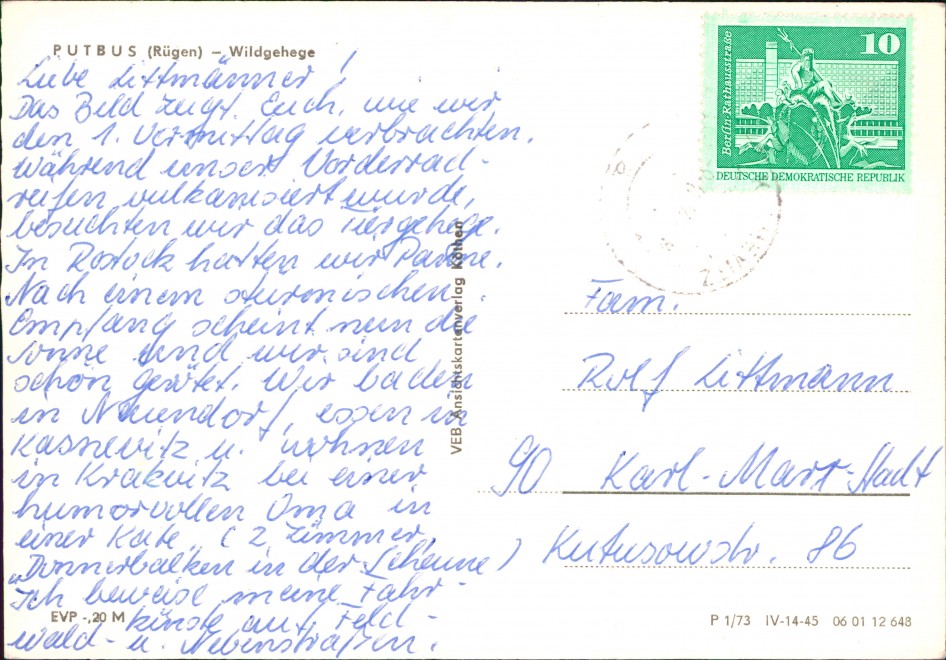 PUTBUS (Rügen) – Wildgehege
Liebe Littmänner!
Das Bild zeigt Euch, wie wir
den 1. Vormittag verbrachten.
Während unser Vorderrad-
reifen vulkanisiert wurde,
besuchten wir das Tiergehege.
In Rostock hatten wir Panne.
Nach einem stürmischen
Empfang scheint nun die
Sonne und wir sind
schön gerötet. Wir baden
in Neuendorf, essen in
Kasnevitz u. wohnen
in Krakvitz bei einer
humorvollen Oma in
einer Kate. (2 Zimmer,
"Donnerbalken in der Scheune)
Ich beweise meine Fahr-
künste auf Feld-
wald- u. Nebenstraßen.
EVP -,20 M
VEB Ansichtskartenverlag Köthen
10
Berlin, Rathausstraße
DEUTSCHE DEMOKRATISCHE REPUBLIK
Fam.
Rolf Littmann
90 Karl-Marx-Stadt
Kutusowstr. 86
P 1/73 IV-14-45 06 01 12 648